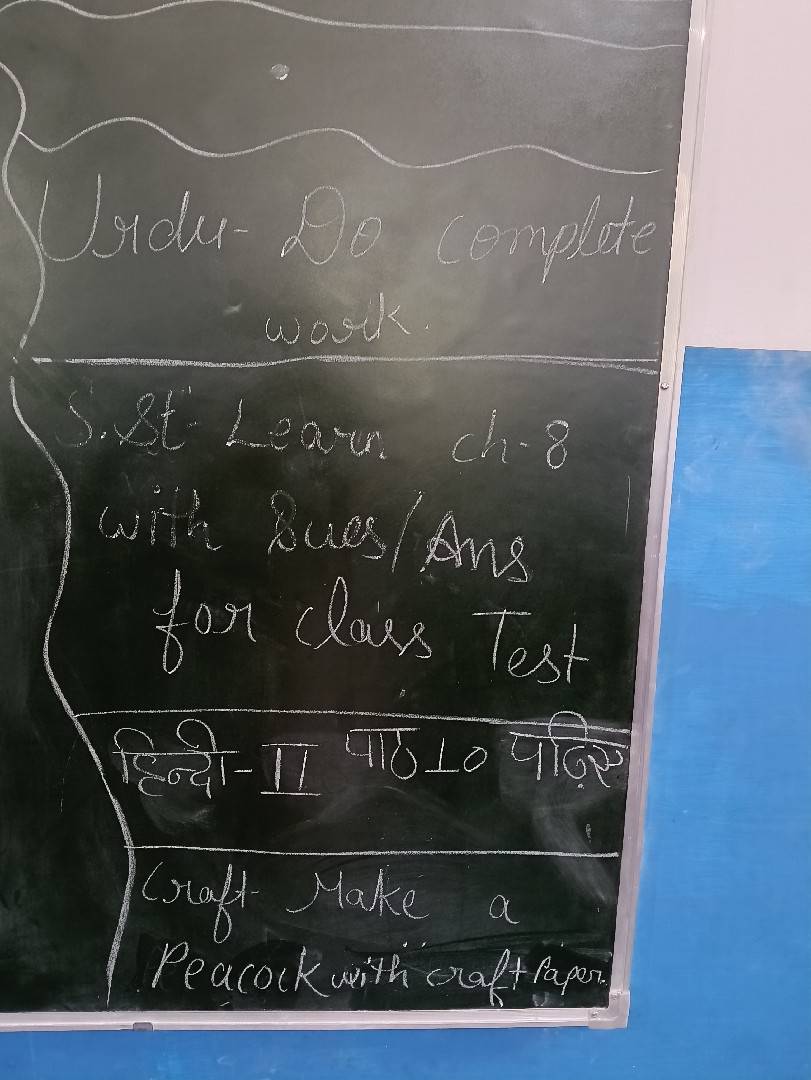 Urdu- Do complete
work.
S.St- Learn ch-8
with Ques/Ans
for class Test
हिन्दी-II पाठ 10 पढ़िए
Craft- Make a
Peacock with craft Paper.